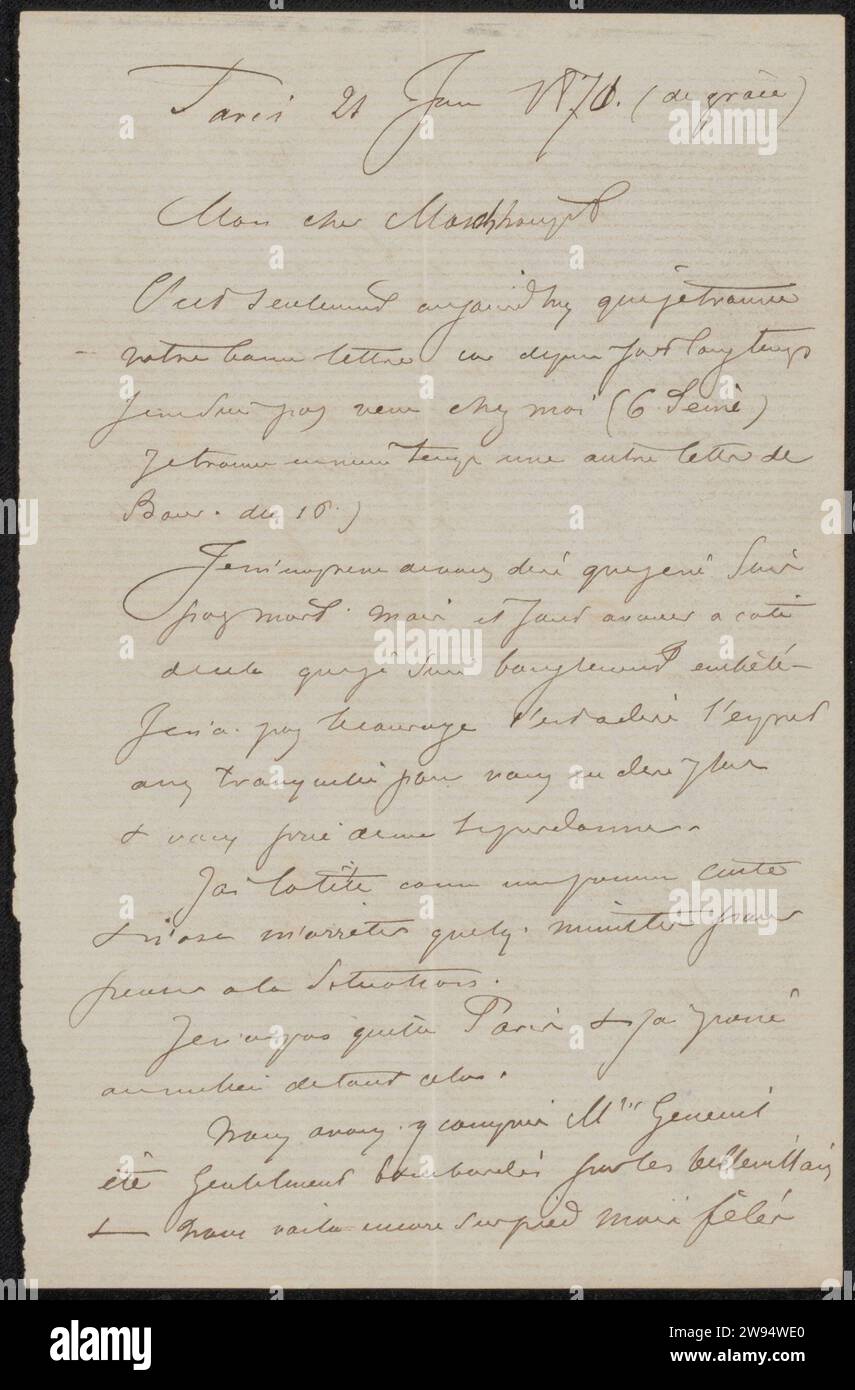 Paris 21 Juin 1871. (de grace)
Mon cher Maschhaupt
C'est seulement aujourd'huy que je trouve
votre bonne lettre car depuis fort longtemps
je ne suis pas venu chez moi (6 Seine)
Je trouve en meme temps une autre lettre de
du 16.)
Je m'empresse de vous dire que je ne suis
pas mort. mais il faut avouer a coté
de cela que je suis bougrement embêté -
Je n'a pas le courage c'est a dire l'esprit
assez tranquille pour vous en dire plus
& vous prie de me le pardonner.
J'ai la tête comme une pomme cuite
& n'ose m'arrêter quelq. minutes pour
penser a la situation.
Je n'ai pas quitté Paris & j'ai passé
au milieu de tout cela.
Nous avons y compris
été gentilment bombardés par les bellevillais
& nous voila encore sur pied mais fêlés
alamy
alamy
alamy
a
a
a
a
a
a
a
alamy
Image ID: 2W94WE0
www.alamy.com